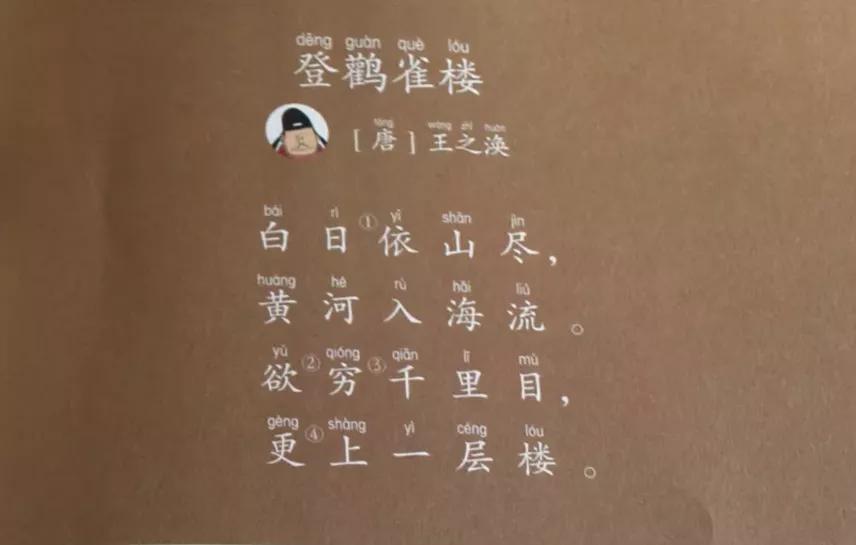 dēng guàn què lóu
登鹳雀楼
táng wáng zhī huàn
[唐] 王之涣
bái rì yī shān jìn
白日①依山尽，
huáng hé rù hǎi liú
黄河入海流。
yù qióng qiān lǐ mù
欲②穷③千里目，
gèng shàng yì céng lóu
更④上一层楼。